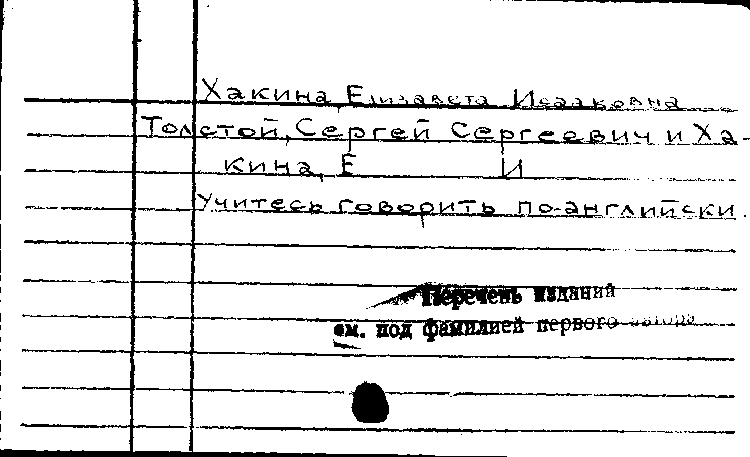 Хакина, Елизавета Исааковна
Толстой, Сергей Сергеевич и Ха-
кина, Е И
Учитесь говорить по-английски.
Перечень изданий
см. под фамилией первого автора